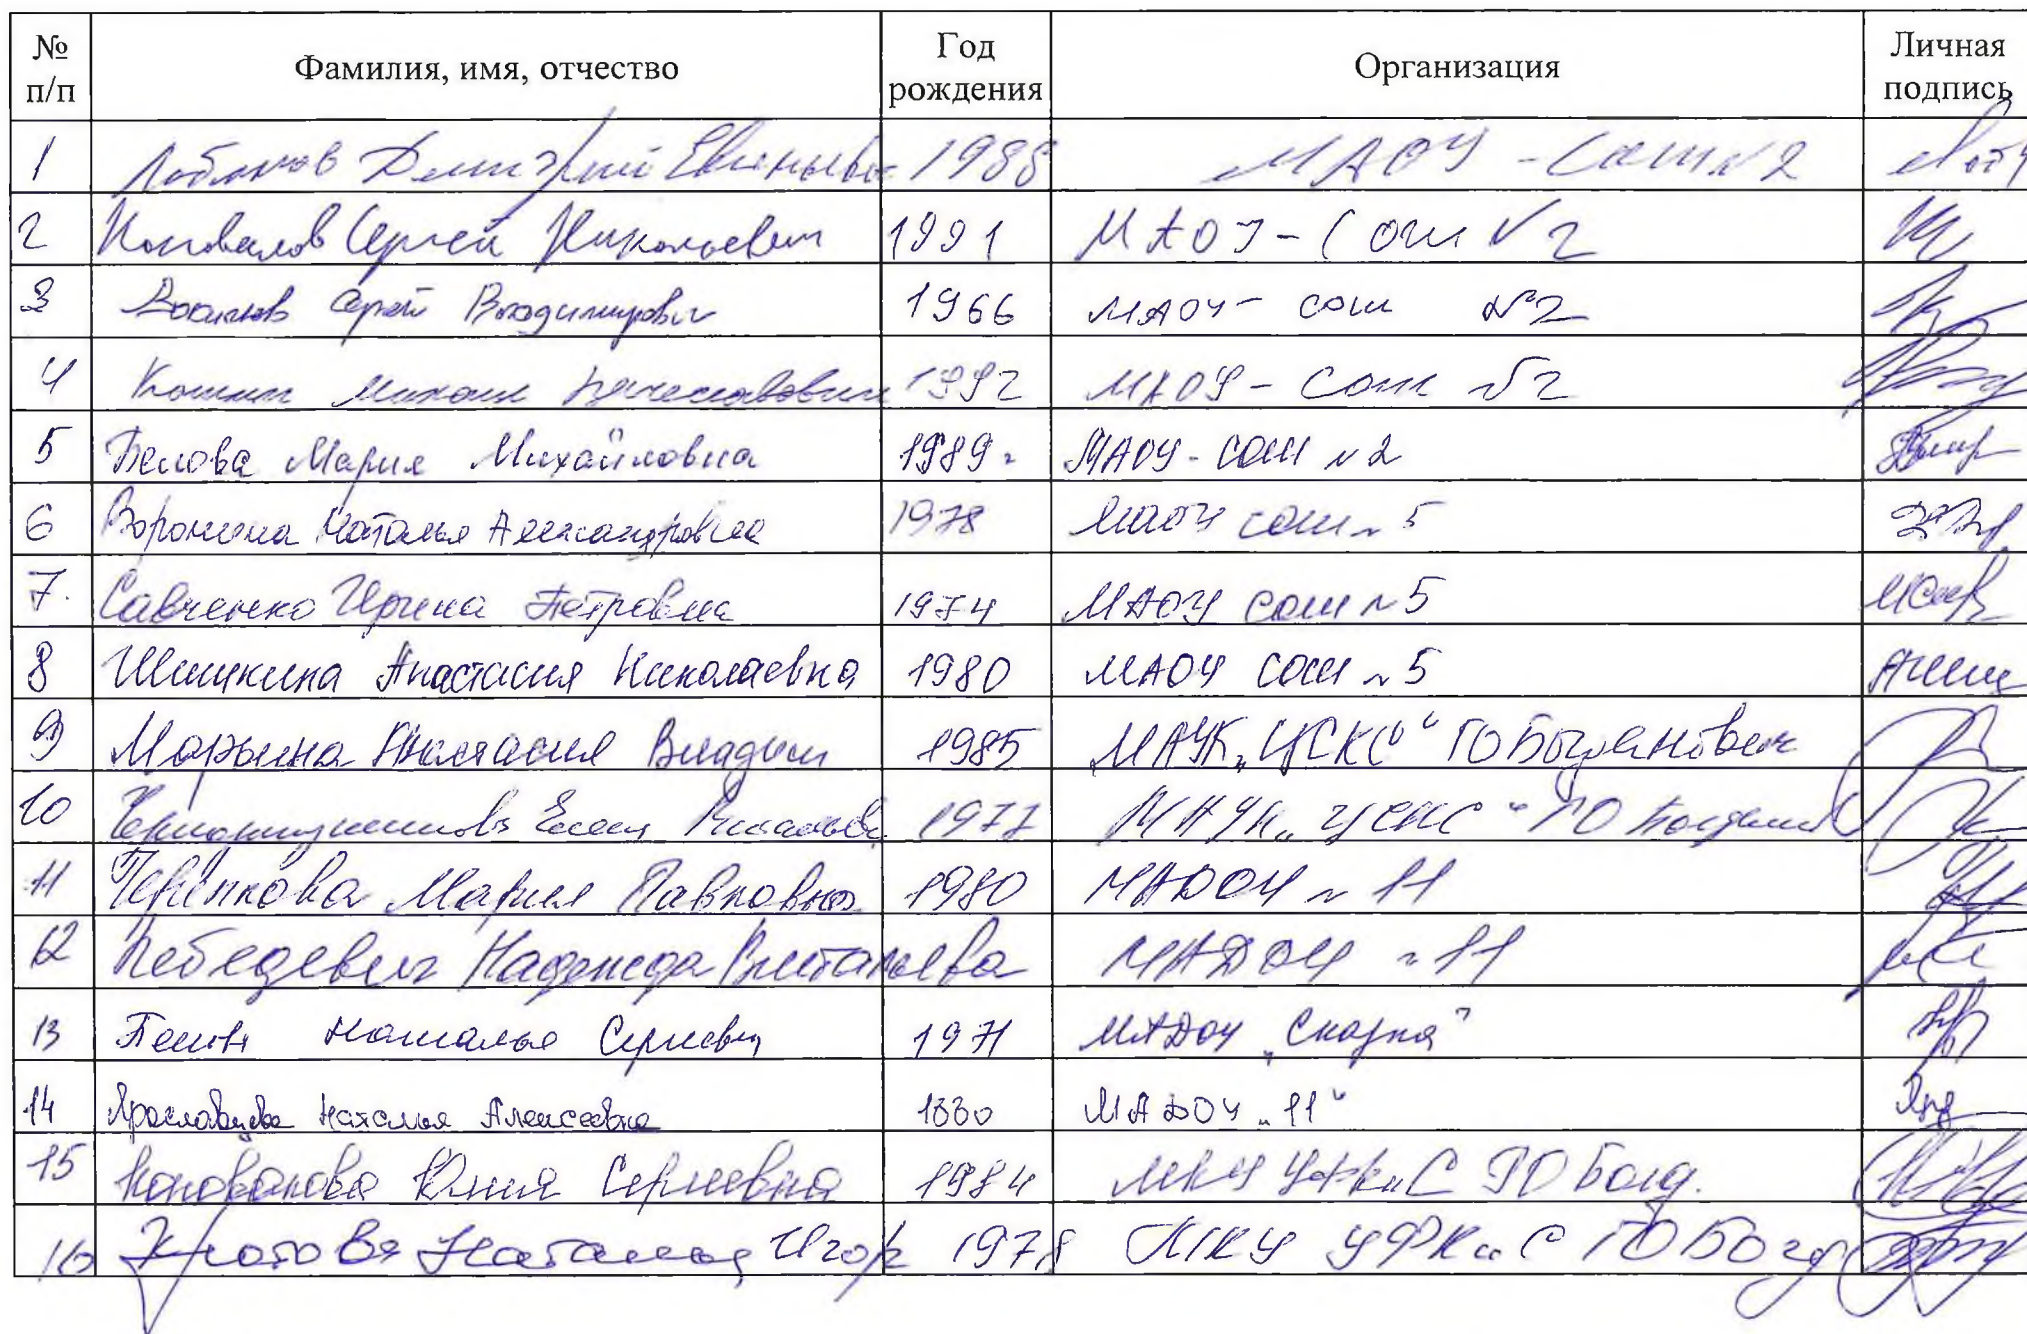 № п/п Фамилия, имя, отчество Год рождения Организация Личная подпись
1 Дмитрий 1988 МАОУ - Сош №2
2 Коновалов Сергей Николаевич 1991 МАОУ - Сош №2
3 Сергей Владимирович 1966 МАОУ - сош №2
4 Михаил Вячеславович 1992 МАОУ - Сош №2
5 Белова Мария Михайловна 1989г. МАОУ - СОШ №2
6 Воронина Наталья Александровна 1978 МАОУ сош №5
7. Савченко Ирина Петровна 1974 МАОУ сош №5
8 Шишкина Анастасия Николаевна 1980 МАОУ СОШ №5
9 Марьина Анастасия Владим 1985 МАУК „ЦСКС“ ГО Богданович
10 Елена 1977 МАУК „ЦСКС“ ГО
11 Мария Павловна 1980 МАДОУ №11
12 Лебедевич Надежда МАДОУ №11
13 Наталья Сергеевна 1971 МАДОУ „Сказка“
14 Ярославцева Наталья Алексеевна 1980 МАДОУ „11“
15 Коновалова Юлия Сергеевна 1984 МКУ УФКиС ГО Богд.
16 Кротова Наталья Игор 1978 МКУ УФКиС ГО Богд